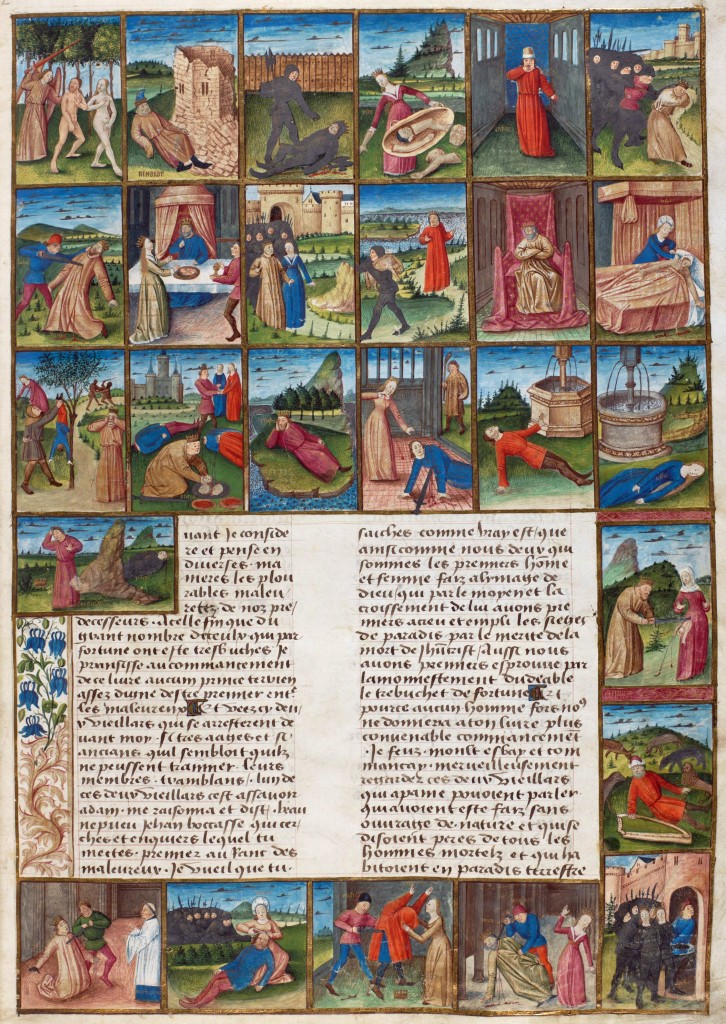 NENROLT
uant Je conside
re et pense en
diverses ma
nieres les plou
rables maleu
retez de noz pre
decesseurs. A celle fin que du
grant nombre diceulx qui par
fortune ont este tresbuches Je
prensisse au commancement
de ce livre aucun prince terrien
assez digne destre premier ent
les maleureux Et veezcy deux
Vieillars qui se arresterent de
uant moy. Si tres aagez et si
ancians quil sembloit quilz
ne peussent trainner leurs
membres. tramblans. lun de
ces deux vieillars cest assavoir
adam. me raisonna et dist. beau
nepueu Jehan boccasse qui cer
ches et enquiers lequel tu
mectes. premier au ranc des
maleureux. Je vueil que tu
saiches comme vray est. que
ansi comme nous deux qui
sommes les premiers home
et femme faiz a lymaige de
dieu. qui par le moyen et la
croissement de lui avons pre
miers acreu et empli les sieges
de paradis par le merite de la
mort de jhucrist. Aussi nous
avons premiers esprouve par
lamonnestement du deable
le trebuchet de fortune Et
pource aucun homme fors no9
ne donnera a ton livre plus
convenable commancement
. Je feuz. moult esbay et com
mancay. merveilleusement
regarder ces deux vieillars
qui a paine pouoient parler
qui auoient este faiz sans
ouvraige de nature et qui se
disoient peres de tous les
hommes mortelz et qui ha
bitoient en paradis terrestre